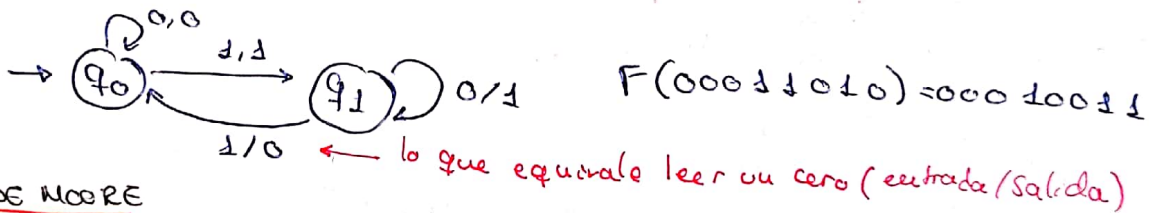 0,0
1,1
q0
q1
0/1
F(00011010)=00010011
1/0
lo que equivale leer un cero (entrada/salida)
DE MOORE